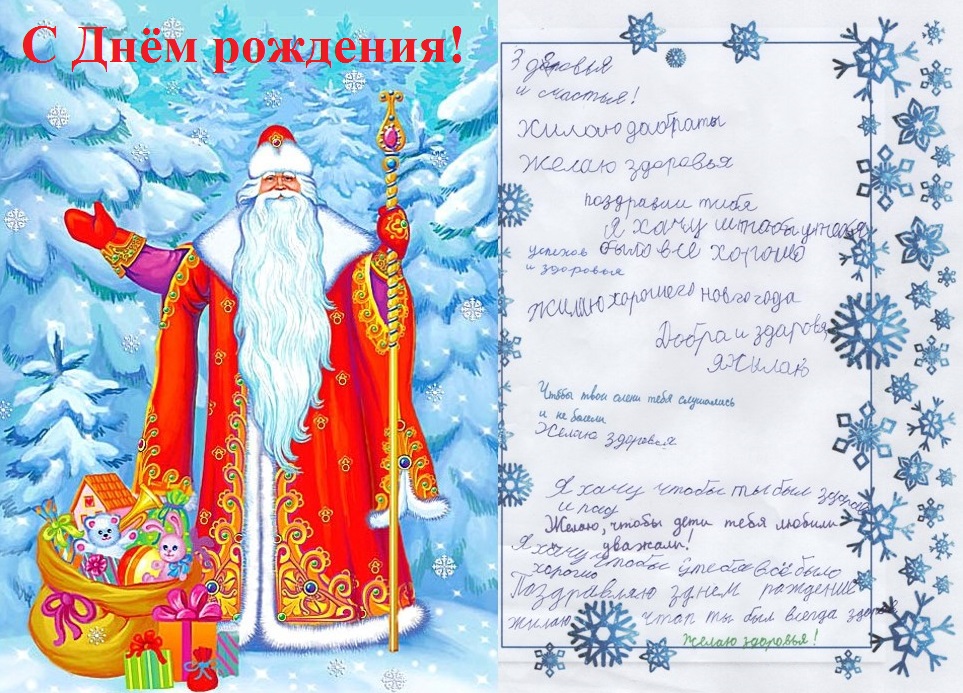 С Днём рождения!
Здоровья
и счастья!
Жилаю даобраты
Желаю здоровья
поздравим тибя
Я хачу штобы утебя
было всё хорошо
успехов
и здоровья
Жилаю хорошего новгогода
Добра и здаровя
я жилаю
Чтобы твои олени тебя слушались
и не болели
Желаю здоровья
Я хачу чтобы ты был здоров
и
Желаю, чтобы дети тебя любили
и уважали!
Я хачу чтобы утебя всё было
хорошо
Поздравляю зднем рождение
жилаю чтоп ты был всегда здоров
Желаю здоровья!